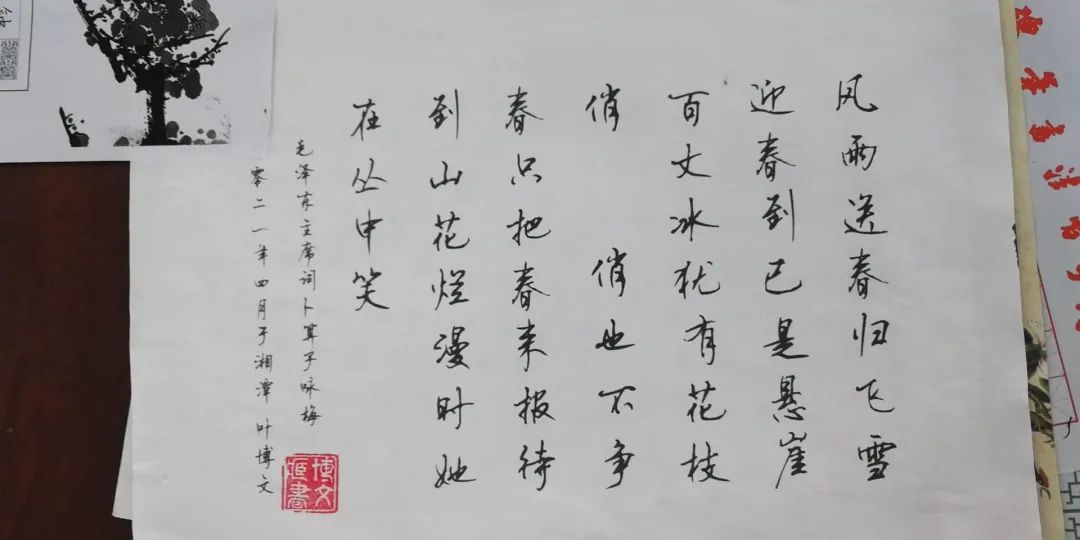 风雨送春归飞雪
迎春到已是悬崖
百丈冰犹有花枝
俏 俏也不争
春只把春来报待
到山花烂漫时她
在丛中笑
毛泽东主席词卜算子咏梅
零二一年四月于湘潭 叶博文
博文
書